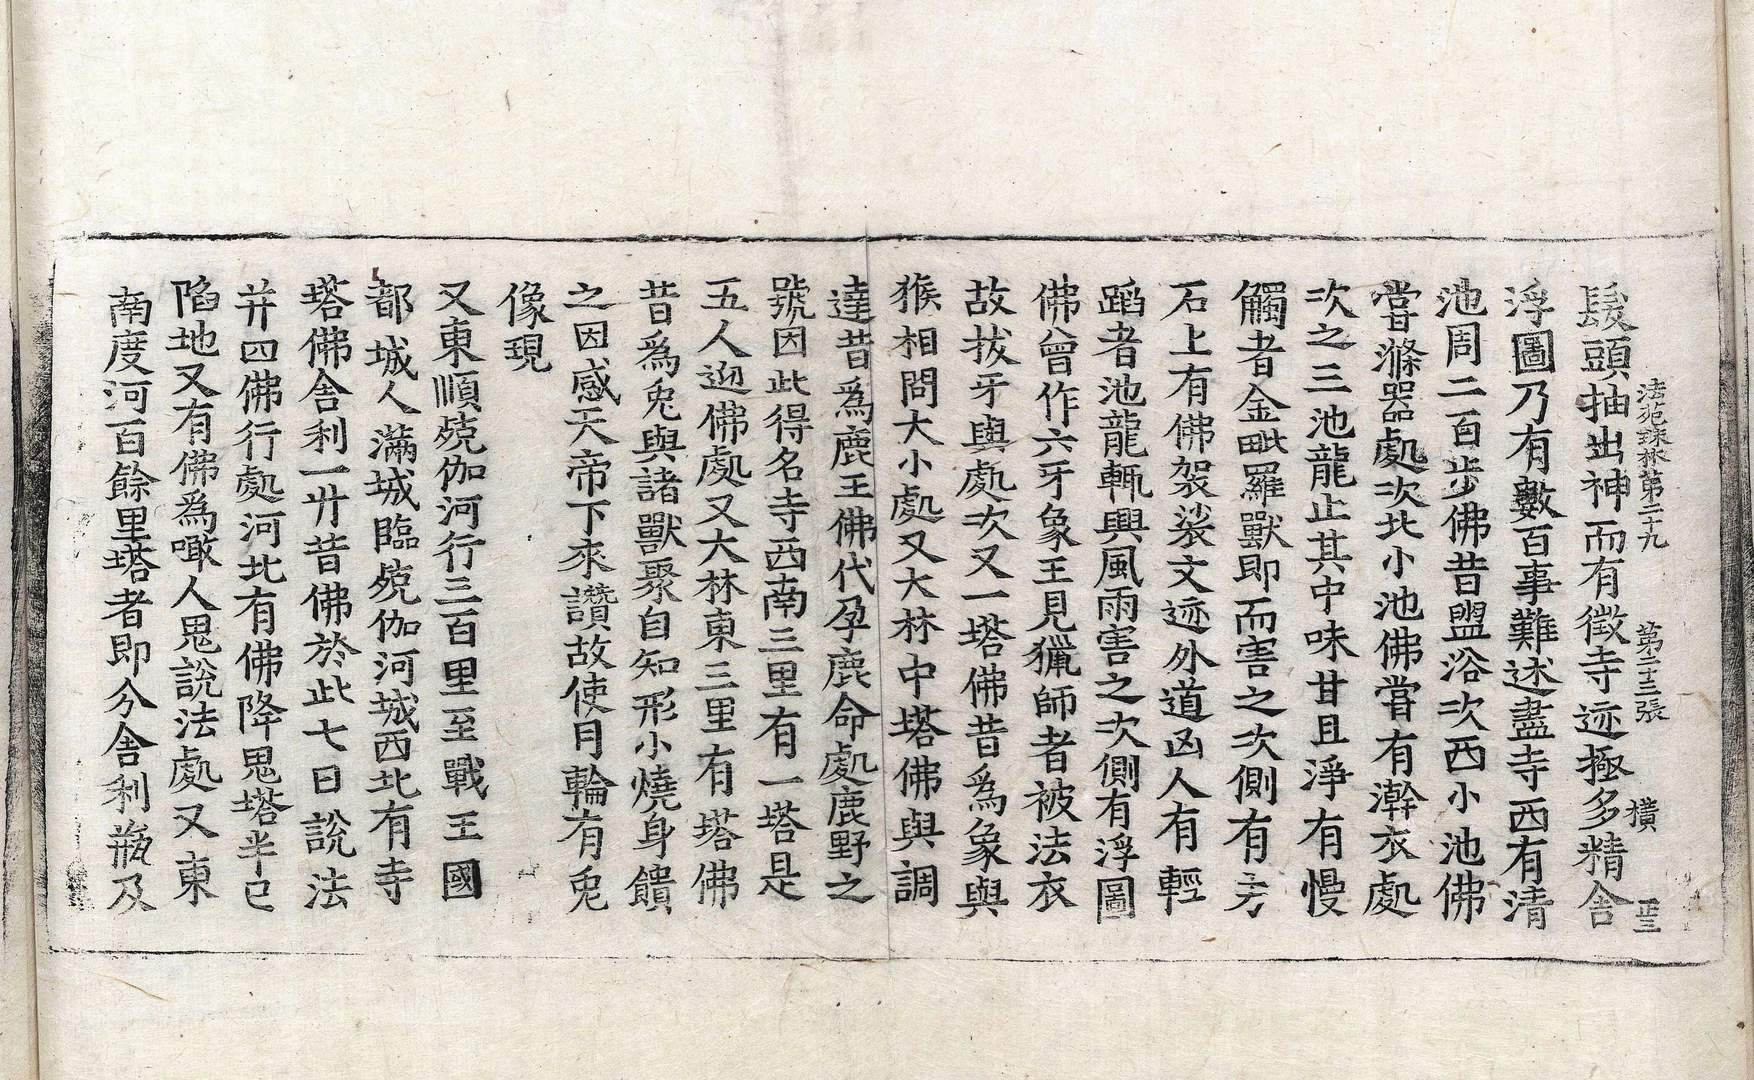 法苑珠林第二十九　第二十三張　橫
髮頭抽出神而有徵寺迹極多精舍
浮圖乃有數百事難述盡寺西有清
池周二百步佛昔盥浴次西小池佛
嘗滌器處次北小池佛嘗有澣衣處
次之三池龍止其中味甘且淨有慢
觸者金毗羅獸即而害之次側有方
石上有佛袈裟文迹外道凶人有輕
蹈者池龍輒興風雨害之次側有浮圖
佛曾作六牙象王見獵師者被法衣
故拔牙與處次又一塔佛昔為象與
猴相問大小處又大林中塔佛與調
達昔為鹿王佛代孕鹿命處鹿野之
號因此得名寺西南三里有一塔是
五人迎佛處又大林東三里有塔佛
昔為兔與諸獸聚自知形小燒身饋
之因感天帝下來讚故使月輪有兔
像現
又東順殑伽河行三百里至戰王國
都城人滿城臨殑伽河城西北有寺
塔佛舍利一升昔佛於此七日說法
并四佛行處河北有佛降鬼塔半已
陷地又有佛為噉人鬼說法處又東
南度河百餘里塔者即分舍利瓶及